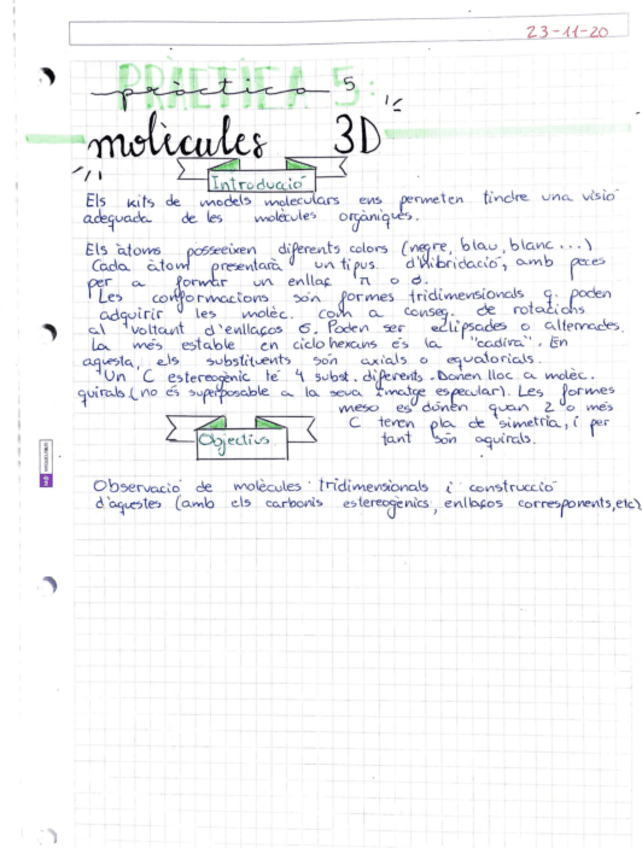 23-11-20
PRÀCTICA 5:
pràctica 5
molècules 3D
Introducció
Els kits de models moleculars ens permeten tindre una visió
adequada de les molècules orgàniques.
Els àtoms posseeixen diferents colors (negre, blau, blanc...)
Cada àtom presentarà un tipus d'hibridació, amb peces
per a formar un enllaç π o σ.
Les conformacions són formes tridimensionals q. poden
adquirir les molèc. com a conseq. de rotacions
al voltant d'enllaços σ. Poden ser eclipsades o alternades.
La més estable en ciclohexans és la "cadira". En
aquesta, els substituents són axials o equatorials.
Un C estereogènic té 4 subst. diferents. Donen lloc a molèc.
quirals (no és superposable a la seva imatge especular). Les formes
meso es donen quan 2 o més
C tenen pla de simetria, i per
tant són aquirals.
Objectius
Observació de molècules tridimensionals i construcció
d'aquestes (amb els carbonis estereogènics, enllaços corresponents, etc)